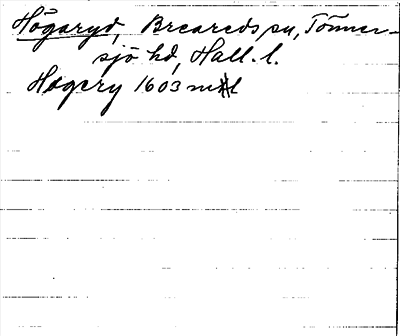 Högaryd, Breareds sn, Tönner-
sjö hd, Hall. l.
Högery 1603 mtl